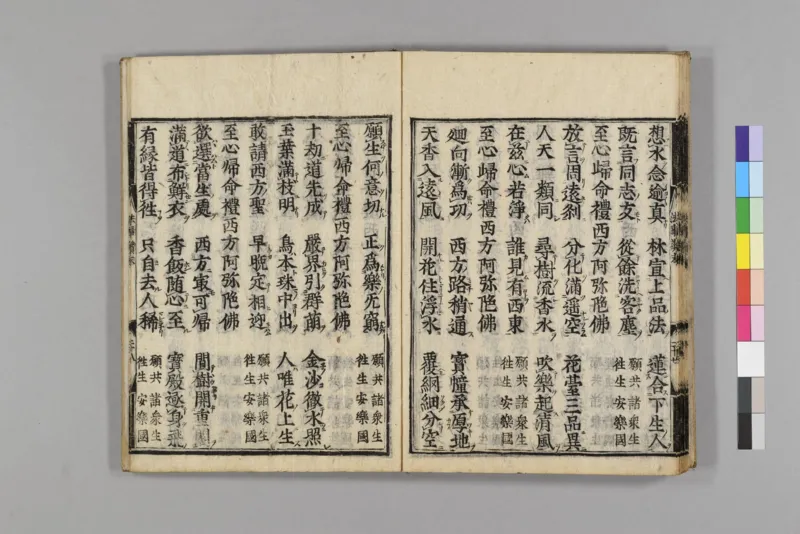 想水念逾真 林宣上品法 蓮合下生人
既言同志友 從餘洗客塵 願共諸衆生 徃生安樂國
至心歸命禮西方阿弥陁佛
放言周遠刹 分化滿遥空 花臺三品異
人天一類同 尋樹流香水 吹樂起清風
在兹心若淨 誰見有西東 願共諸衆生 徃生安樂國
至心歸命禮西方阿弥陁佛
廻向漸爲功 西方路稍通 寳幢承厚地
天香入遠風 開花住浮水 覆網細分空
願生何意切 正爲樂无窮 願共諸衆生 徃生安樂國
至心歸命禮西方阿弥陁佛
十劫道先成 嚴界引群萠 金沙徹水照
玉葉滿枝明 鳥本珠中出 人唯花上生
敢請西方聖 早晩定相迎 願共諸衆生 徃生安樂國
至心歸命禮西方阿弥陁佛
欲選當生處 西方㝡可歸 間樹開重閣
滿道布鮮衣 香飯随心至 寳殿逐身飛
有縁皆得徃 只自去人稀 願共諸衆生 徃生安樂國